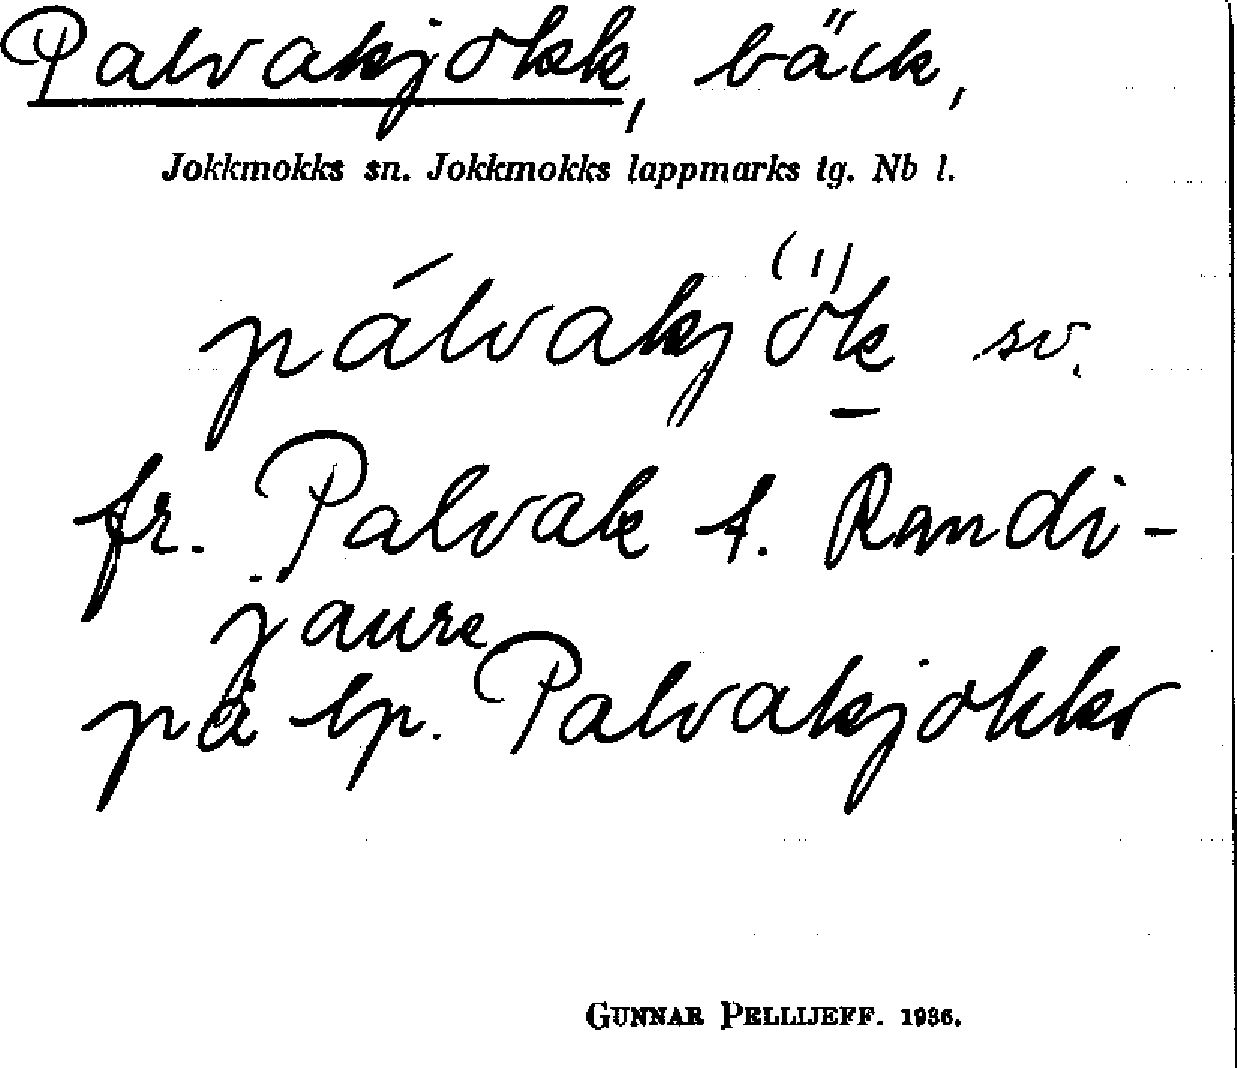 Palvakjokk, bäck,
Jokkmokks sn. Jokkmokks lappmarks tg. Nb l.
pálvakjök̲ sv.
fr. Palvak t. Randi-
jaure
på lp. Palvakjokko
GUNNAR PELLIJEFF. 1936.